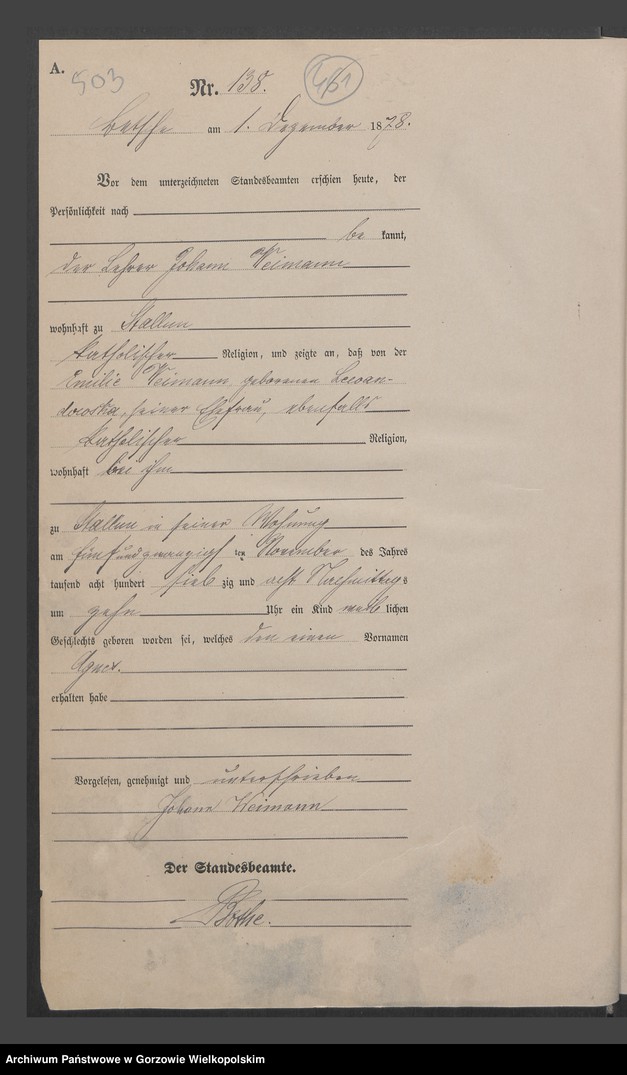 A.
503
Nr. 138.
461
Betsche am 1. Dezember 1878.
Vor dem unterzeichneten Standesbeamten erschien heute, der
Persönlichkeit nach
be kannt,
der Lehrer Johann Weimann
wohnhaft zu Stallun
katholischer Religion, und zeigte an, daß von der
Emilie Weimann geborenen Lewan-
dowska, seiner Ehefrau, ebenfalls
katholischer Religion,
wohnhaft bei ihm
zu Stallun in seiner Wohnung
am fünfundzwanzigsten November des Jahres
tausend acht hundert siebzig und acht Nachmittags
um zehn Uhr ein Kind weiblichen
Geschlechts geboren worden sei, welches den einen Vornamen
Agnes.
erhalten habe
Vorgelesen, genehmigt und unterschrieben
Johann Weimann
Der Standesbeamte.
Bothe.
Archiwum Państwowe w Gorzowie Wielkopolskim